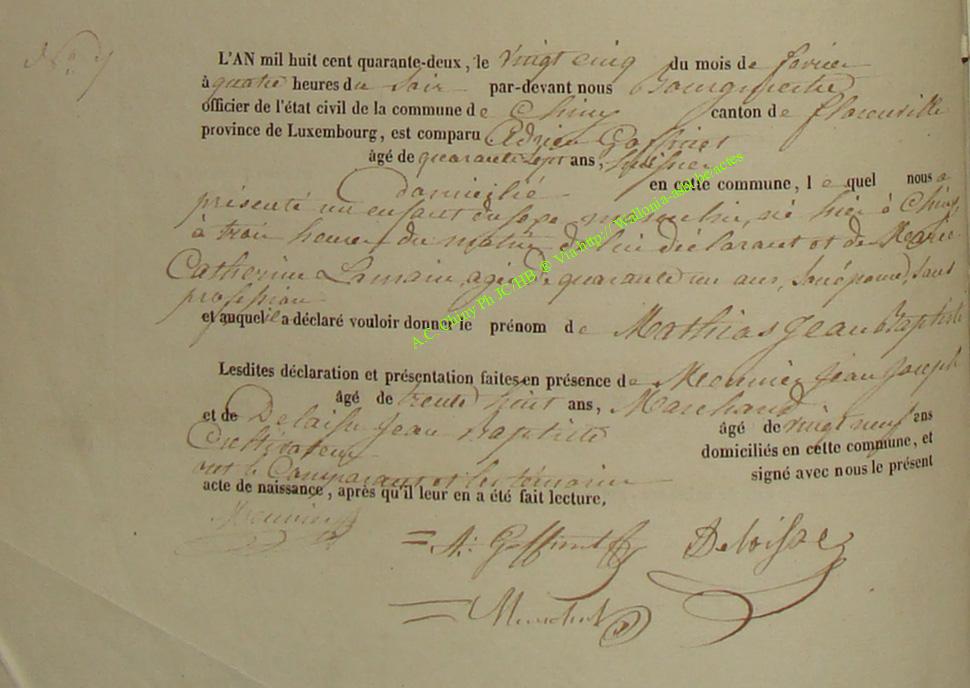 N° 7
L'AN mil huit cent quarante-deux, le vingt cinq du mois de février
à quatre heures du soir par-devant nous Bourgmestre
officier de l'état civil de la commune de Chiny canton de florenville
province de Luxembourg, est comparu Adrien Goffinet
âgé de quarante sept ans, huissier
domicilié en cette commune, l e quel nous a
présenté un enfant du sexe masculin, né hier à Chiny,
à trois heures du matin de lui déclarant et de Marie
Catherine Lamain, agée de quarante un ans, son épouse, sans
profession
et auquel il a déclaré vouloir donner le prénom de Mathias Jean Baptiste
Lesdites déclaration et présentation faites en présence de Meunier Jean Joseph
âgé de trente huit ans, Marchand
et de Delaisse Jean Baptiste âgé de vingt neuf ans
Cultivateur domiciliés en cette commune, et
ont le Comparant et les témoins signé avec nous le présent
acte de naissance, après qu'il leur en a été fait lecture,
Meunier
A: Goffinet Deloisse
A.C. Chiny Ph JC/HB ® Via http://Wallonia-asbl.be/actes